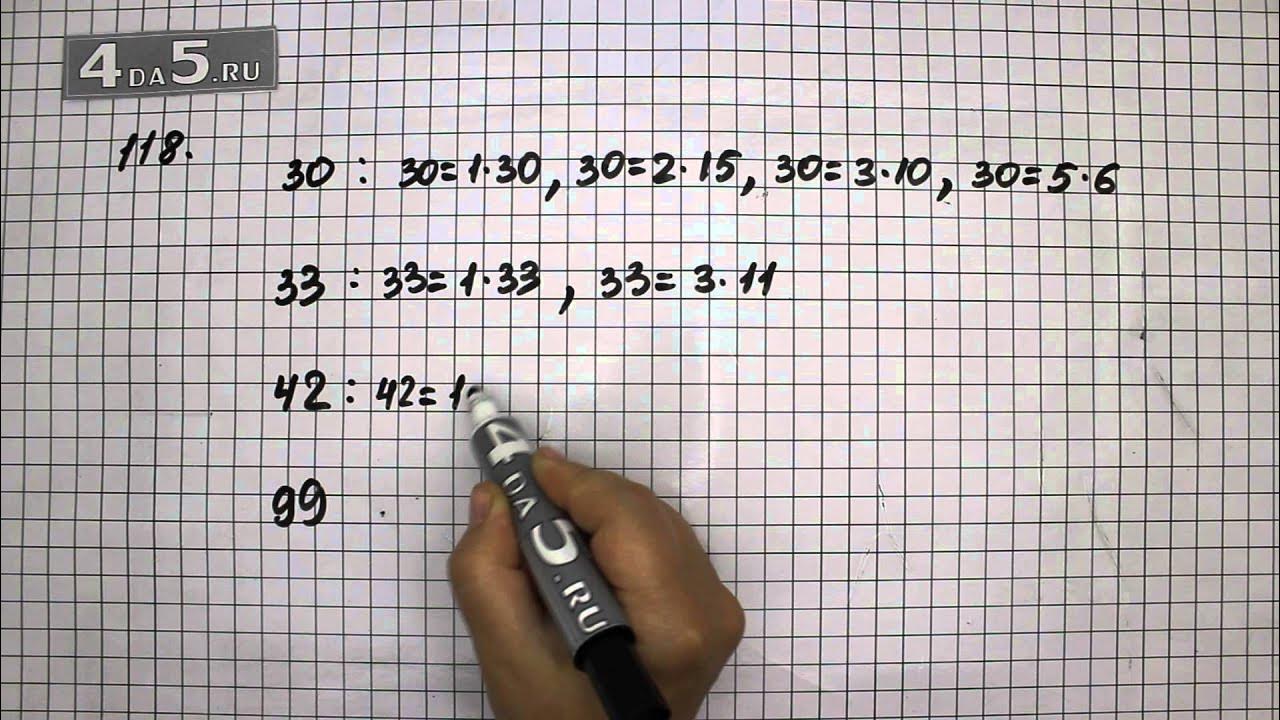 4DA5.RU
118.
30 : 30=1·30, 30=2·15, 30=3·10, 30=5·6
33 : 33=1·33, 33=3·11
42 : 42=1·
99
4DA5.RU